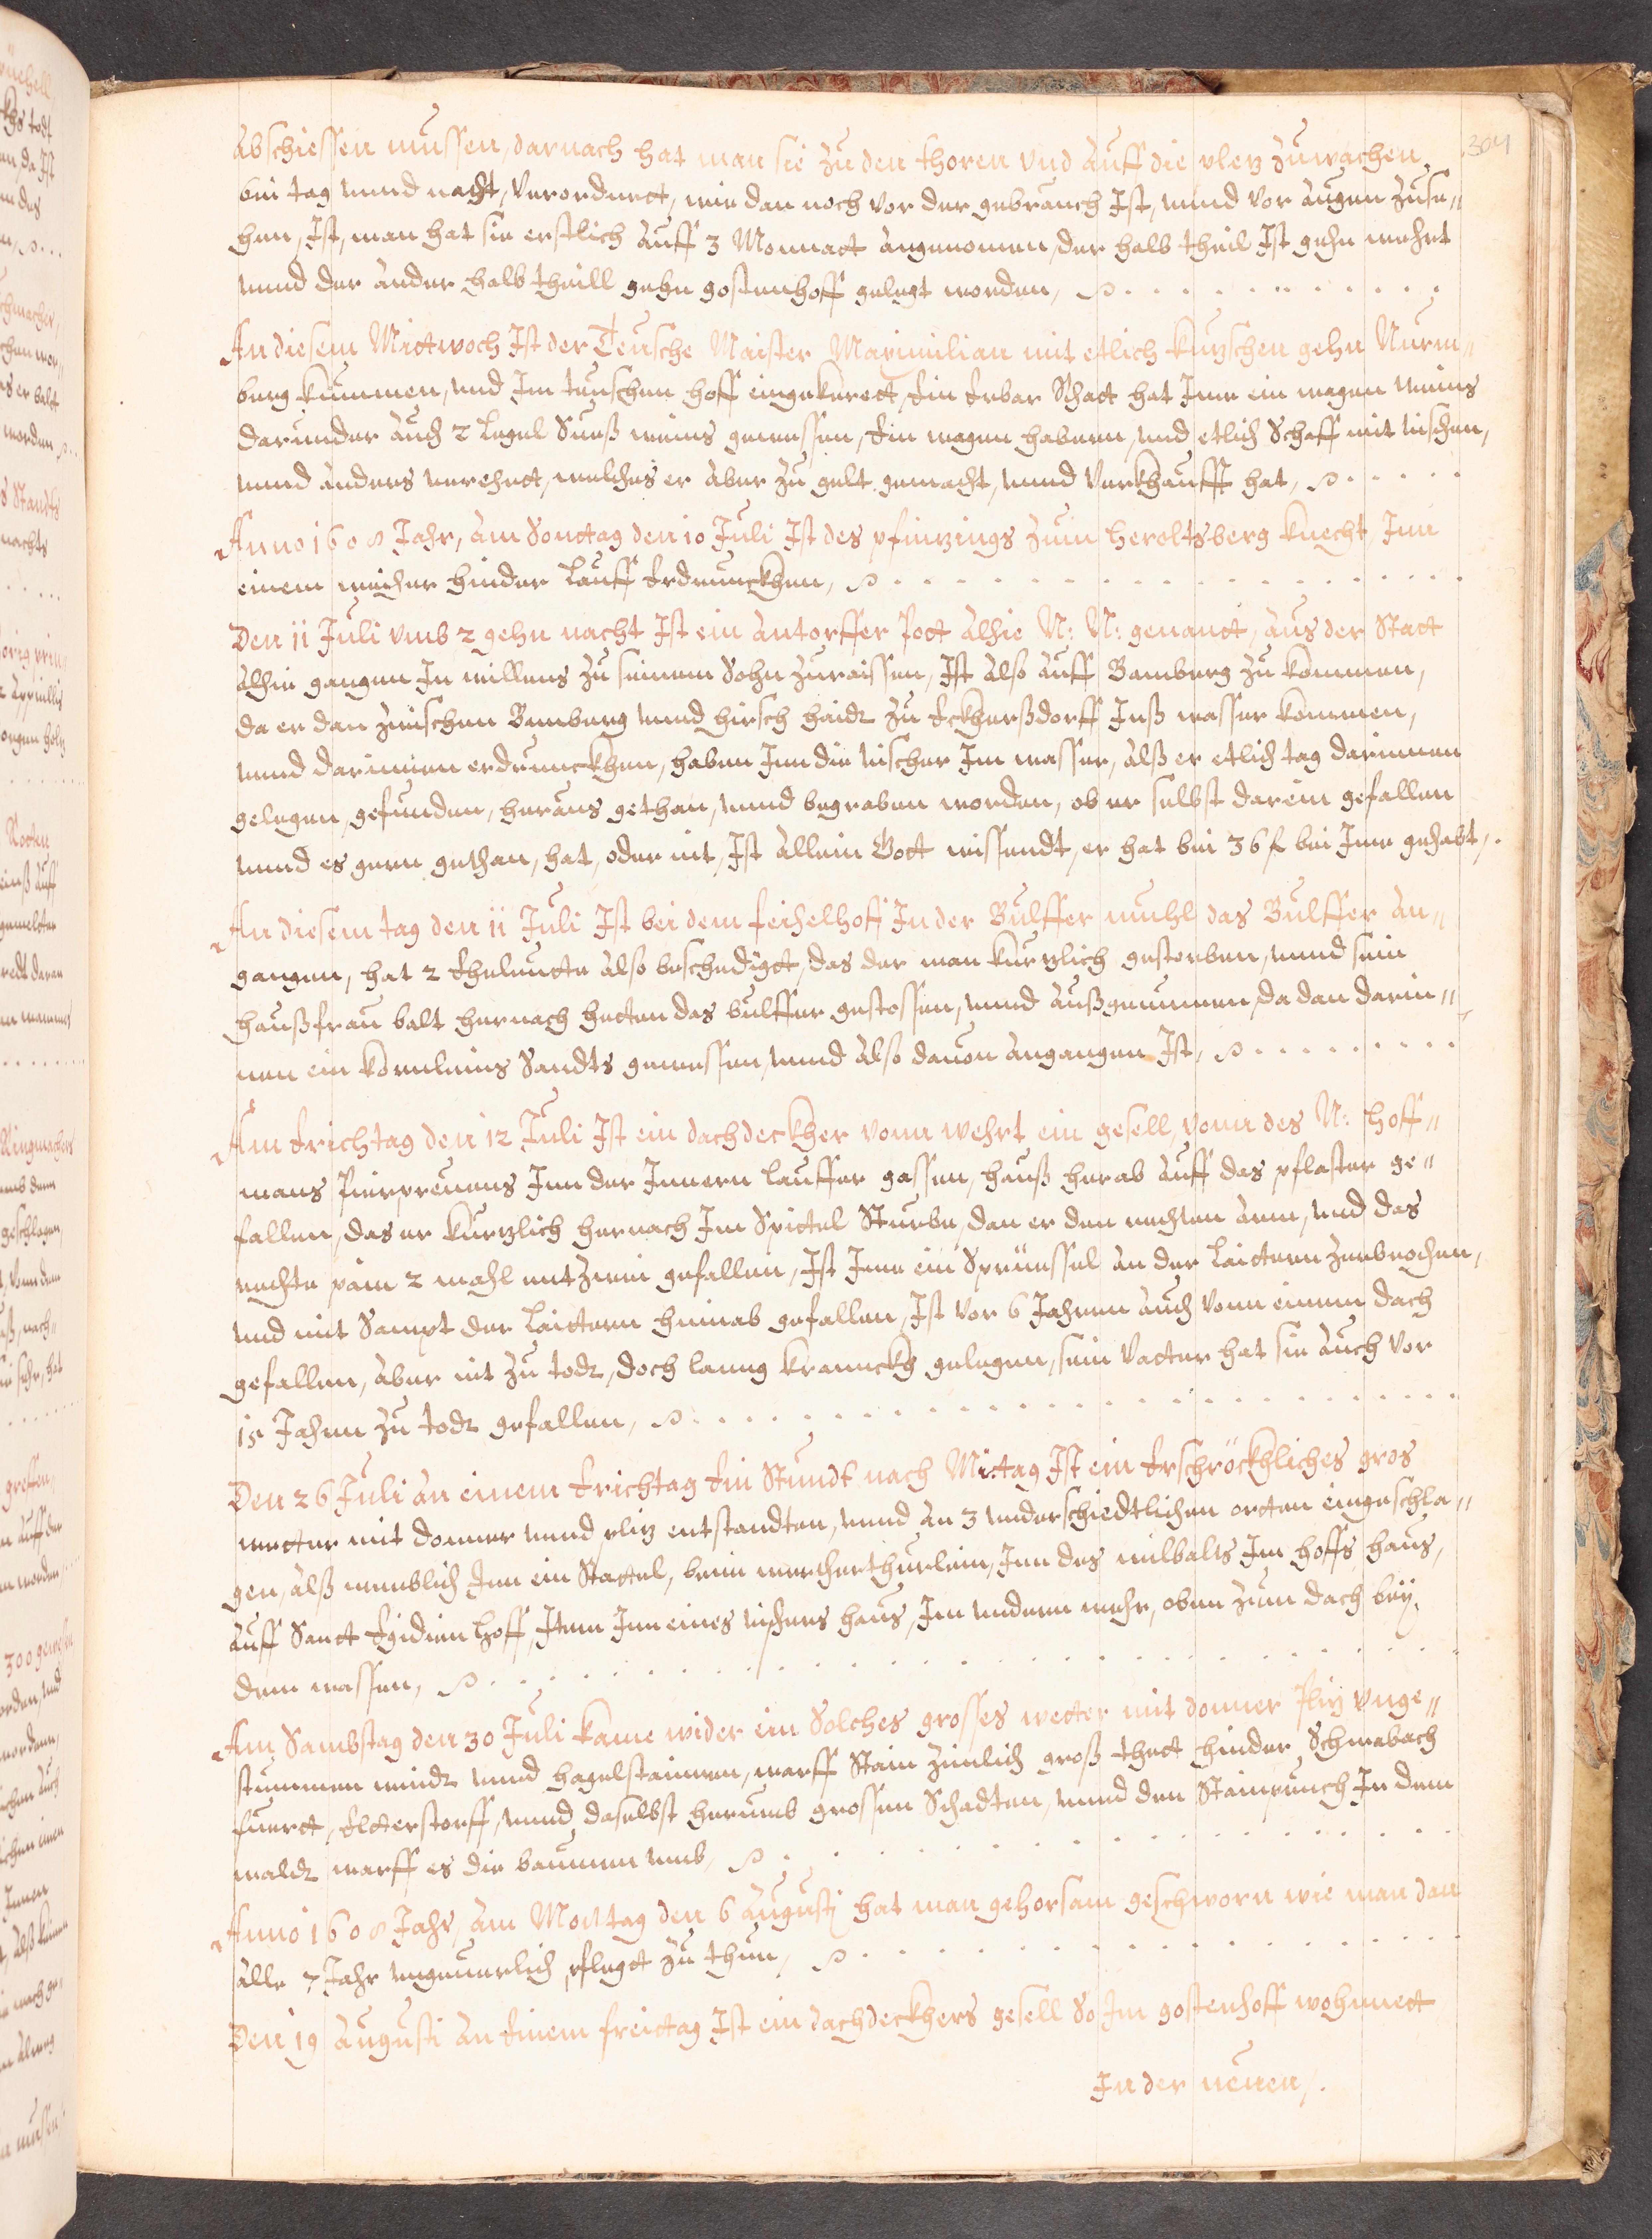 304
Abschiessen mussen, darnach hat man sie zu den thoren vnd auff die pletz zuwachen,
bei tag vnnd nacht, verordnett, wie dan noch vor der gebrauch Ist, vnnd vor augen zuse„
hen, Ist, man hat sie erstlich auff 3 Monnatt angenomen, der halb theil Ist gehn wehrt
vnnd der ander halb theill gehn gostenhoff gelegt worden,
An diesem Mittwoch Ist der Teusche Maister Maximilian mit etlich kutzschen gehn Nurm„
berg kummen, vnd Im teuschen hoff eingekerett, Ein Erbar Rhatt hat Ime ein wagen weins
darunder auch 2 Legel Sueß weins gewessen, Ein wagen habern, vnd etlich Schaff mit vischen,
vnnd anders verehrtt, welches er aber zu gelt gemacht, vnnd verkhaufft hat,
Anno 1608 Jahr, am Sonttag den 10 Juli Ist des pfintzings zum heroltsberg knecht, Inn
einem weiher hinder Lauff Erdrunckhen,
Den 11 Juli vmb 2 gehn nacht Ist ein antorffer Pott alhie N: N: genantt, aus der Statt
alhie gangen In willens zu seinem Sohn zuraissen, Ist also auff Bamberg zu kommen,
da er dan zwischen Bamberg vnnd hirsch haidt zu Eckherßdorff Inß wasser kommen,
vnnd darinnen erdrunckhen, haben Inn die vischer Im wasser, alß er etlich tag darinnen
gelegen, gefunden, heraus gethan, vnnd begraben worden, ob er selbst darein gefallen
vnnd es gern gethan, hat, oder nit, Ist allein Gott wissendt, er hat bei 36 f bei Ime gehabt,.
An diesem tag den 11 Juli Ist bei dem feihelhoff In der Bulffer muhl das Bulffer an„
gangen, hat 2 Eheleutte also beschedigtt, das der man kurtzlich gestorben, vnnd sein
haußfrau balt hernach hetten das bulffer gestossen, vnnd außgenummen, da dan darin„
nen ein kornleins Sandts gewessen, vnnd also dauon angangen Ist,
Am Erichtag den 12 Juli Ist ein dachdeckher vonn wehrt ein gesell, vonn des N: Hoff„
mans Pierpreuens Inn der Innern lauffer gassen, hauß herab auff das pflaster ge„
fallen, das er kurtzlich hernach Im Spittel Sturbe, dan er den rechten arm, vnd das
rechte pain 2 mahl entzwei gefallen, Ist Ime ein Spreussel an der Laittern zerbrochen,
vnd mit Sampt der Laittern hinab gefallen, Ist vor 6 Jahren auch vonn einem dach
gefallen, aber nit zu todt, doch lanng kranckh gelegen, sein Vatter hat sie auch vor
15 Jahren zu todt gefallen,
Den 26 Juli an einem Erichtag Ein Stundt nach Mittag Ist ein Erschröckhliches gros
wetter mit donner vnnd plitz entstandten, vnnd an 3 vnderschiedtlichen ortten eingeschla„
gen, alß nemblich Inn ein Stattel, beim wercherthurlein, Inn des wilbalts Im hoffs haus,
auff Sanct Egidien Hoff, Item Inn eines vischers haus, Im vndern wehr, oben zum dach bey
dem wasser,
Am Sambstag den 30 Juli kame wider ein Solches grosses wetter mit donner Plitz vnge„
stummen windt vnnd hagelstainnen, warff Stain zimlich groß thett hinder Schwabach
fuertt, Eltterstorff, vnnd daselbst herumb grossen Schadten, vnnd den Stainpruch In dem
waldt warff es die baumen vmb,
Anno 1608 Jahr, am Montag den 6 Augusti hat man gehorsam geschworn wie man dan
alle 7 Jahr vngeuerlich pflegtt zu thun,
Den 19 Augusti an Einem freittag Ist ein dachdeckhers gesell So Im gostenhoff wohnnett
In der neuen,.